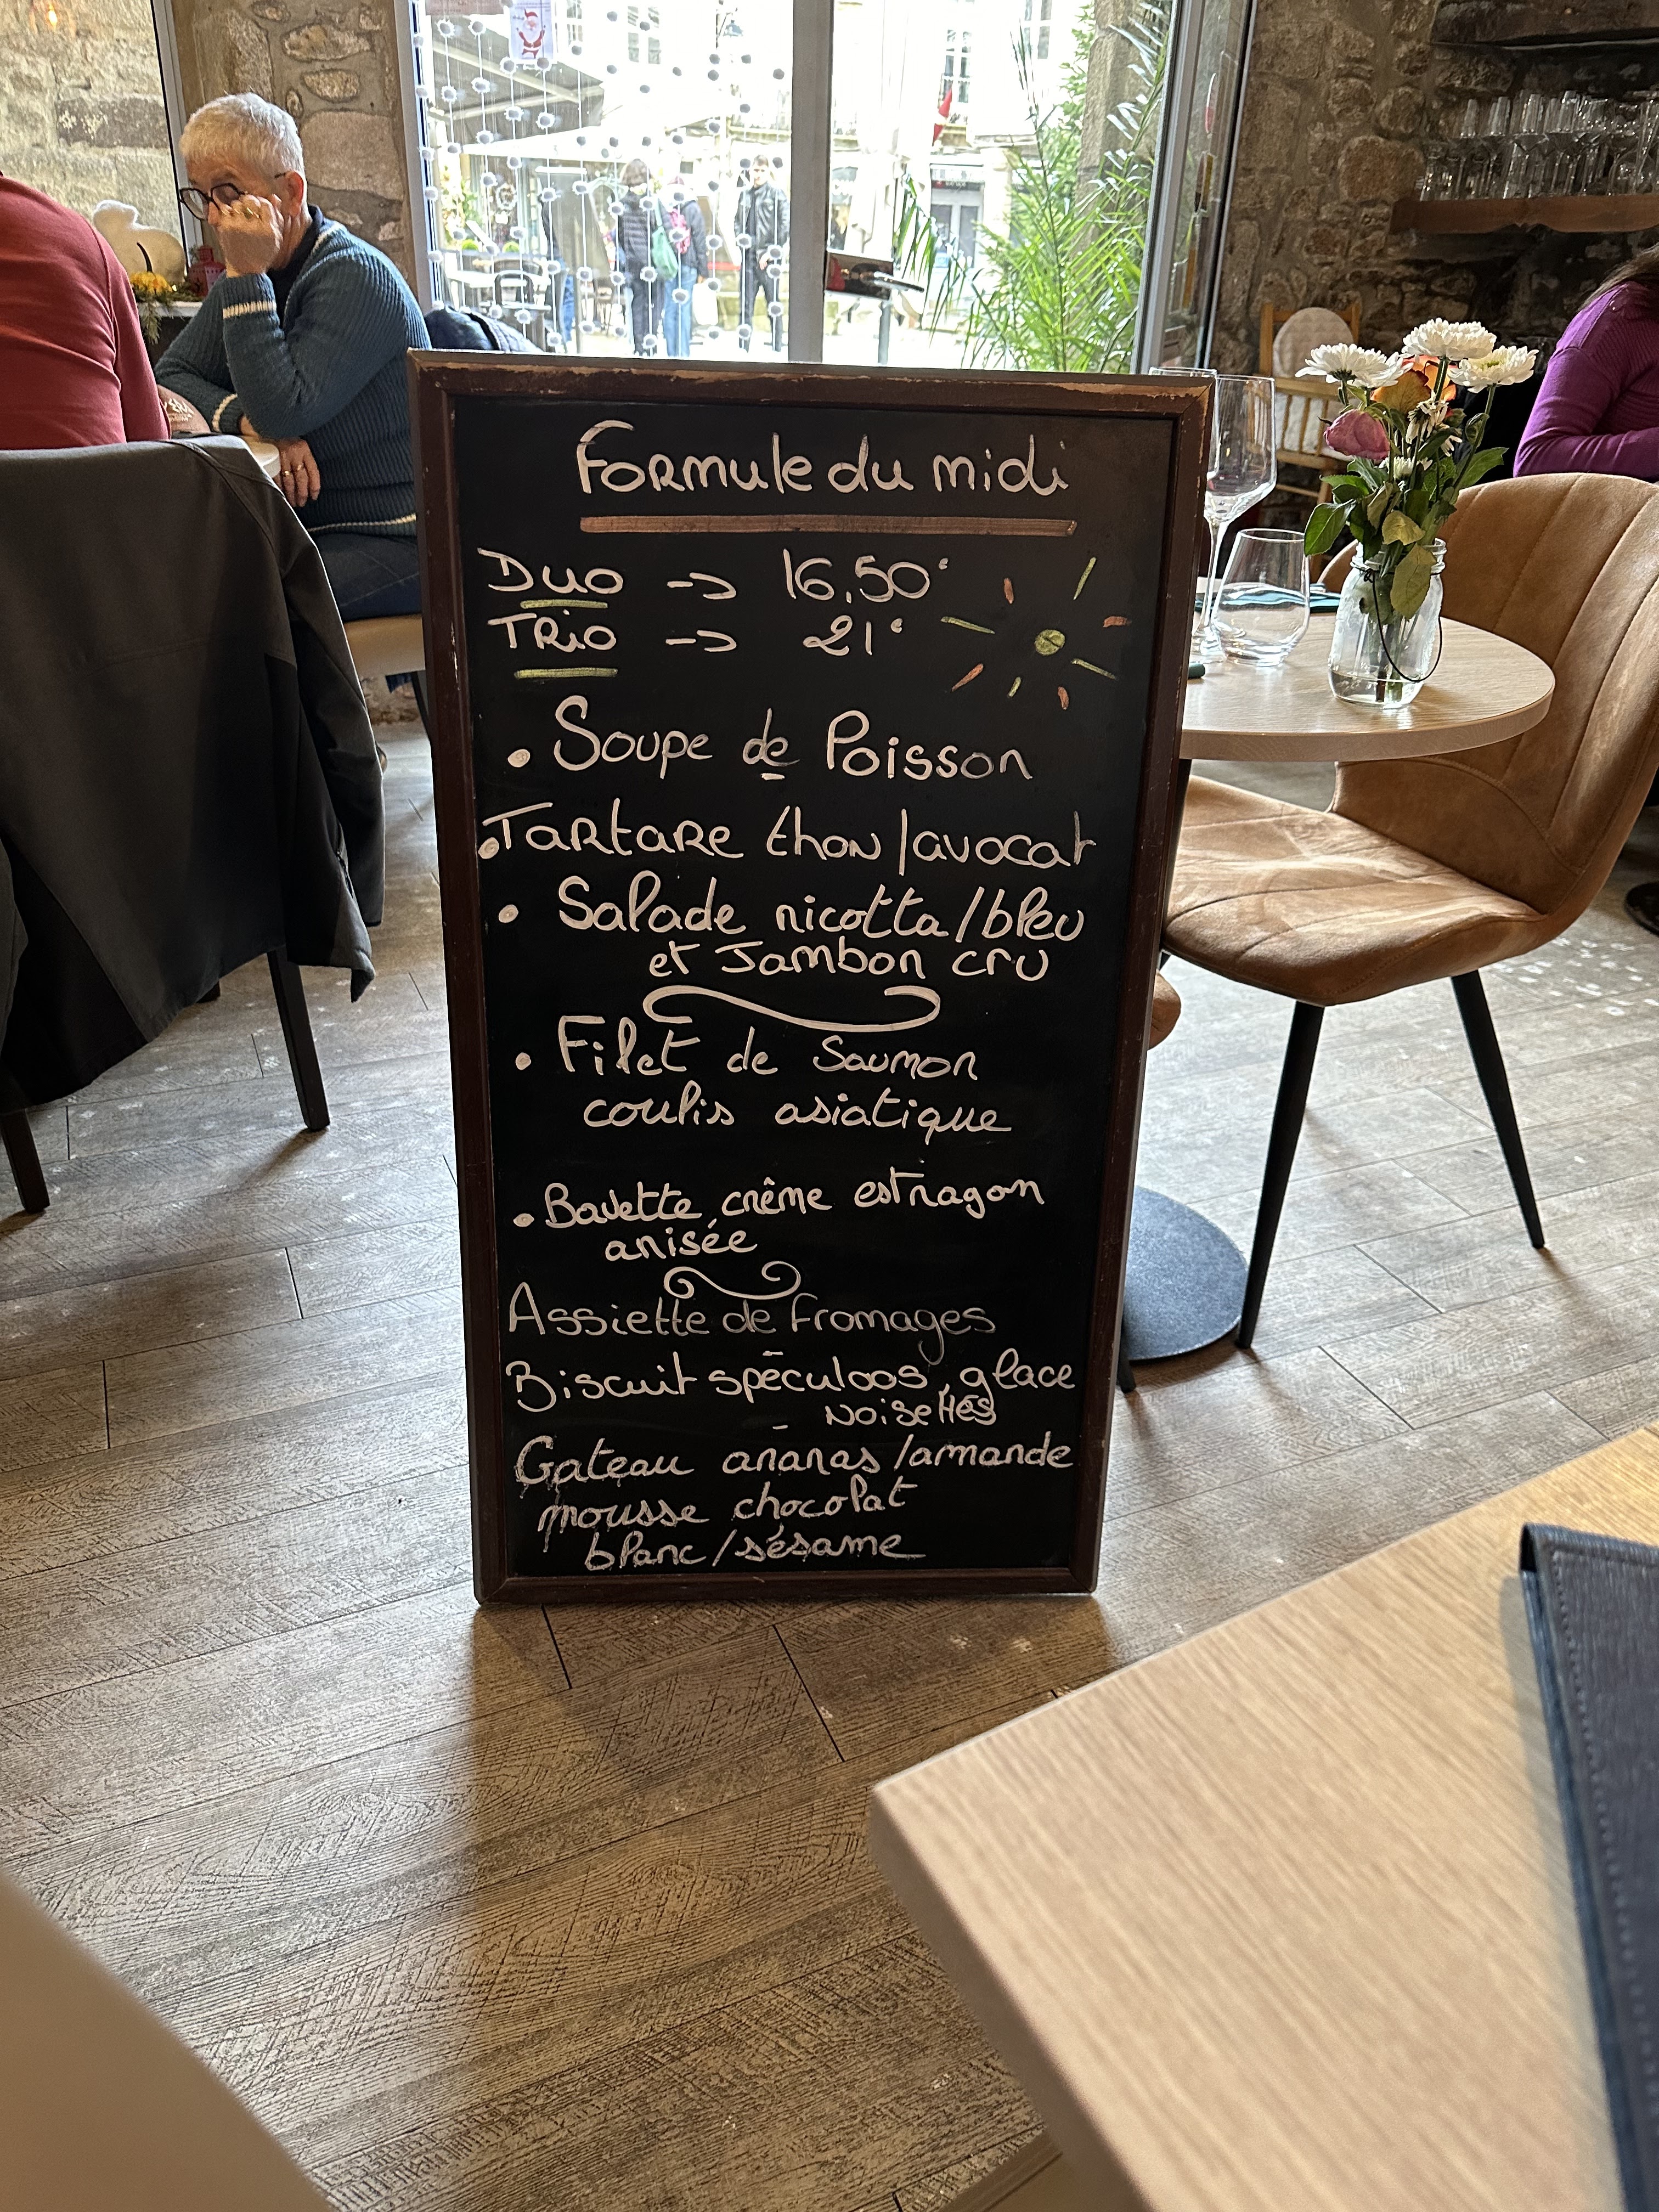 Formule du midi
Duo -> 16,50€
Trio -> 21€
• Soupe de Poisson
• Tartare thon/avocat
• Salade nicotta/bleu
et Jambon cru
• Filet de Saumon
coulis asiatique
• Bavette crême estragon
anisée
Assiette de fromages
-
Biscuit spéculoos, glace
noisettes
-
Gateau ananas/amande
mousse chocolat
blanc/sésame